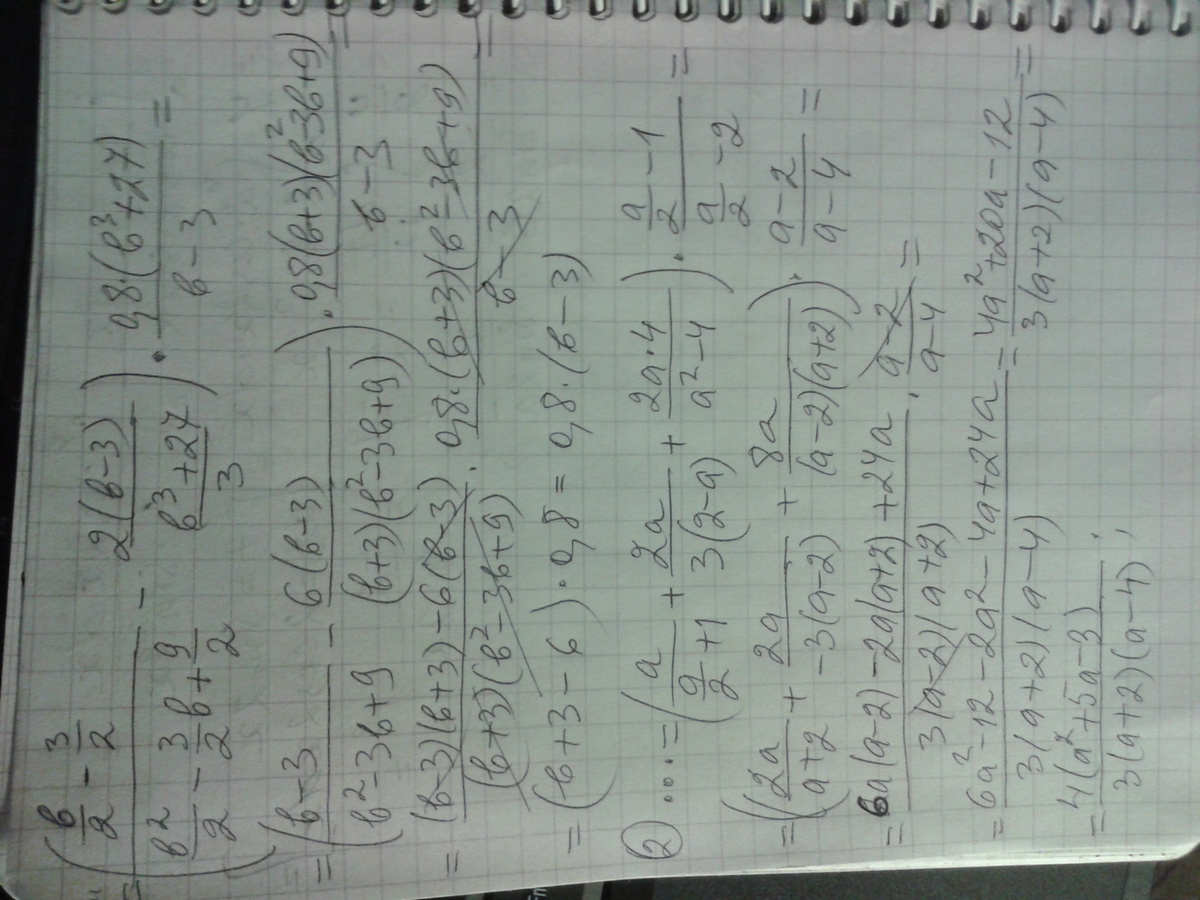 = ((в/2 - 3/2)/(в²/2 - 3/2 в + 9/2) - 2(в-3)/((в³+27)/3)) · 0,8·(в³+27)/(в-3) =
= ((в-3)/(в²-3в+9) - 6(в-3)/((в+3)(в²-3в+9))) · 0,8(в+3)(в²-3в+9)/(в-3) =
= ((в-3)(в+3)-6(в-3))/((в+3)(в²-3в+9)) · 0,8·(в+3)(в²-3в+9)/(в-3) =
= (в+3-6)·0,8 = 0,8·(в-3)
② ... = (a/(a/2+1) + 2a/(3(2-a)) + 2a·4/(a²-4)) · (a/2-1)/(a/2-2) =
= (2a/(a+2) + 2a/(-3(a-2)) + 8a/((a-2)(a+2))) · (a-2)/(a-4) =
= (6a(a-2)-2a(a+2)+24a)/(3(a-2)(a+2)) · (a-2)/(a-4) =
= (6a²-12-2a²-4a+24a)/(3(a+2)(a-4)) = (4a²+20a-12)/(3(a+2)(a-4)) =
= 4(a²+5a-3)/(3(a+2)(a-4)) ;